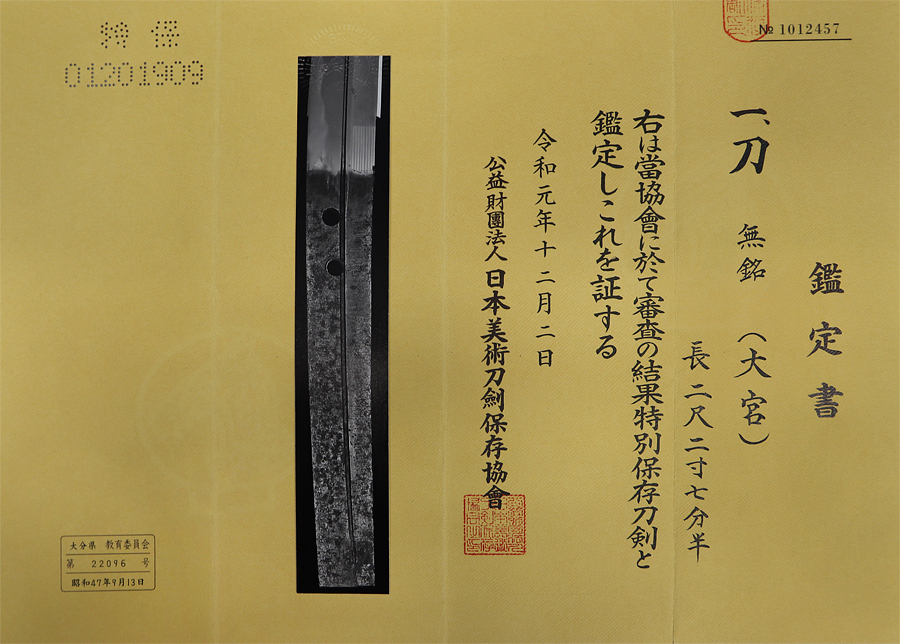 № 1012457
鑑定書
一、刀 無銘 (大宮)
長二尺二寸七分半
右は當協會に於て審査の結果特別保存刀剣と
鑑定しこれを証する
令和元年十二月二日
公益財團法人 日本美術刀劍保存協會
特保
01201909
大分県 教育委員会
第 22096 号
昭和47年9月13日